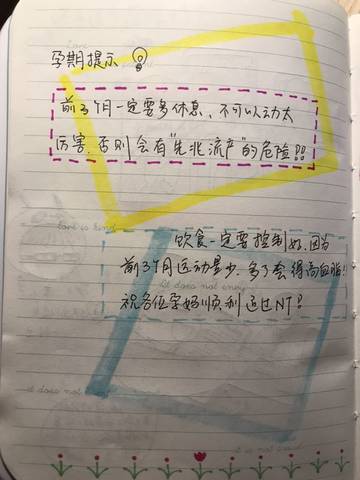 孕期提示
前3个月一定要多休息、不可以动太
厉害.否则会有"先兆流产"的危险!!
love is kind
饮食一定要控制好.因为
前3个月运动量少.多了会得高血脂!
it does not envy
祝各位孕妈顺利通过NT!
it does not
it is not